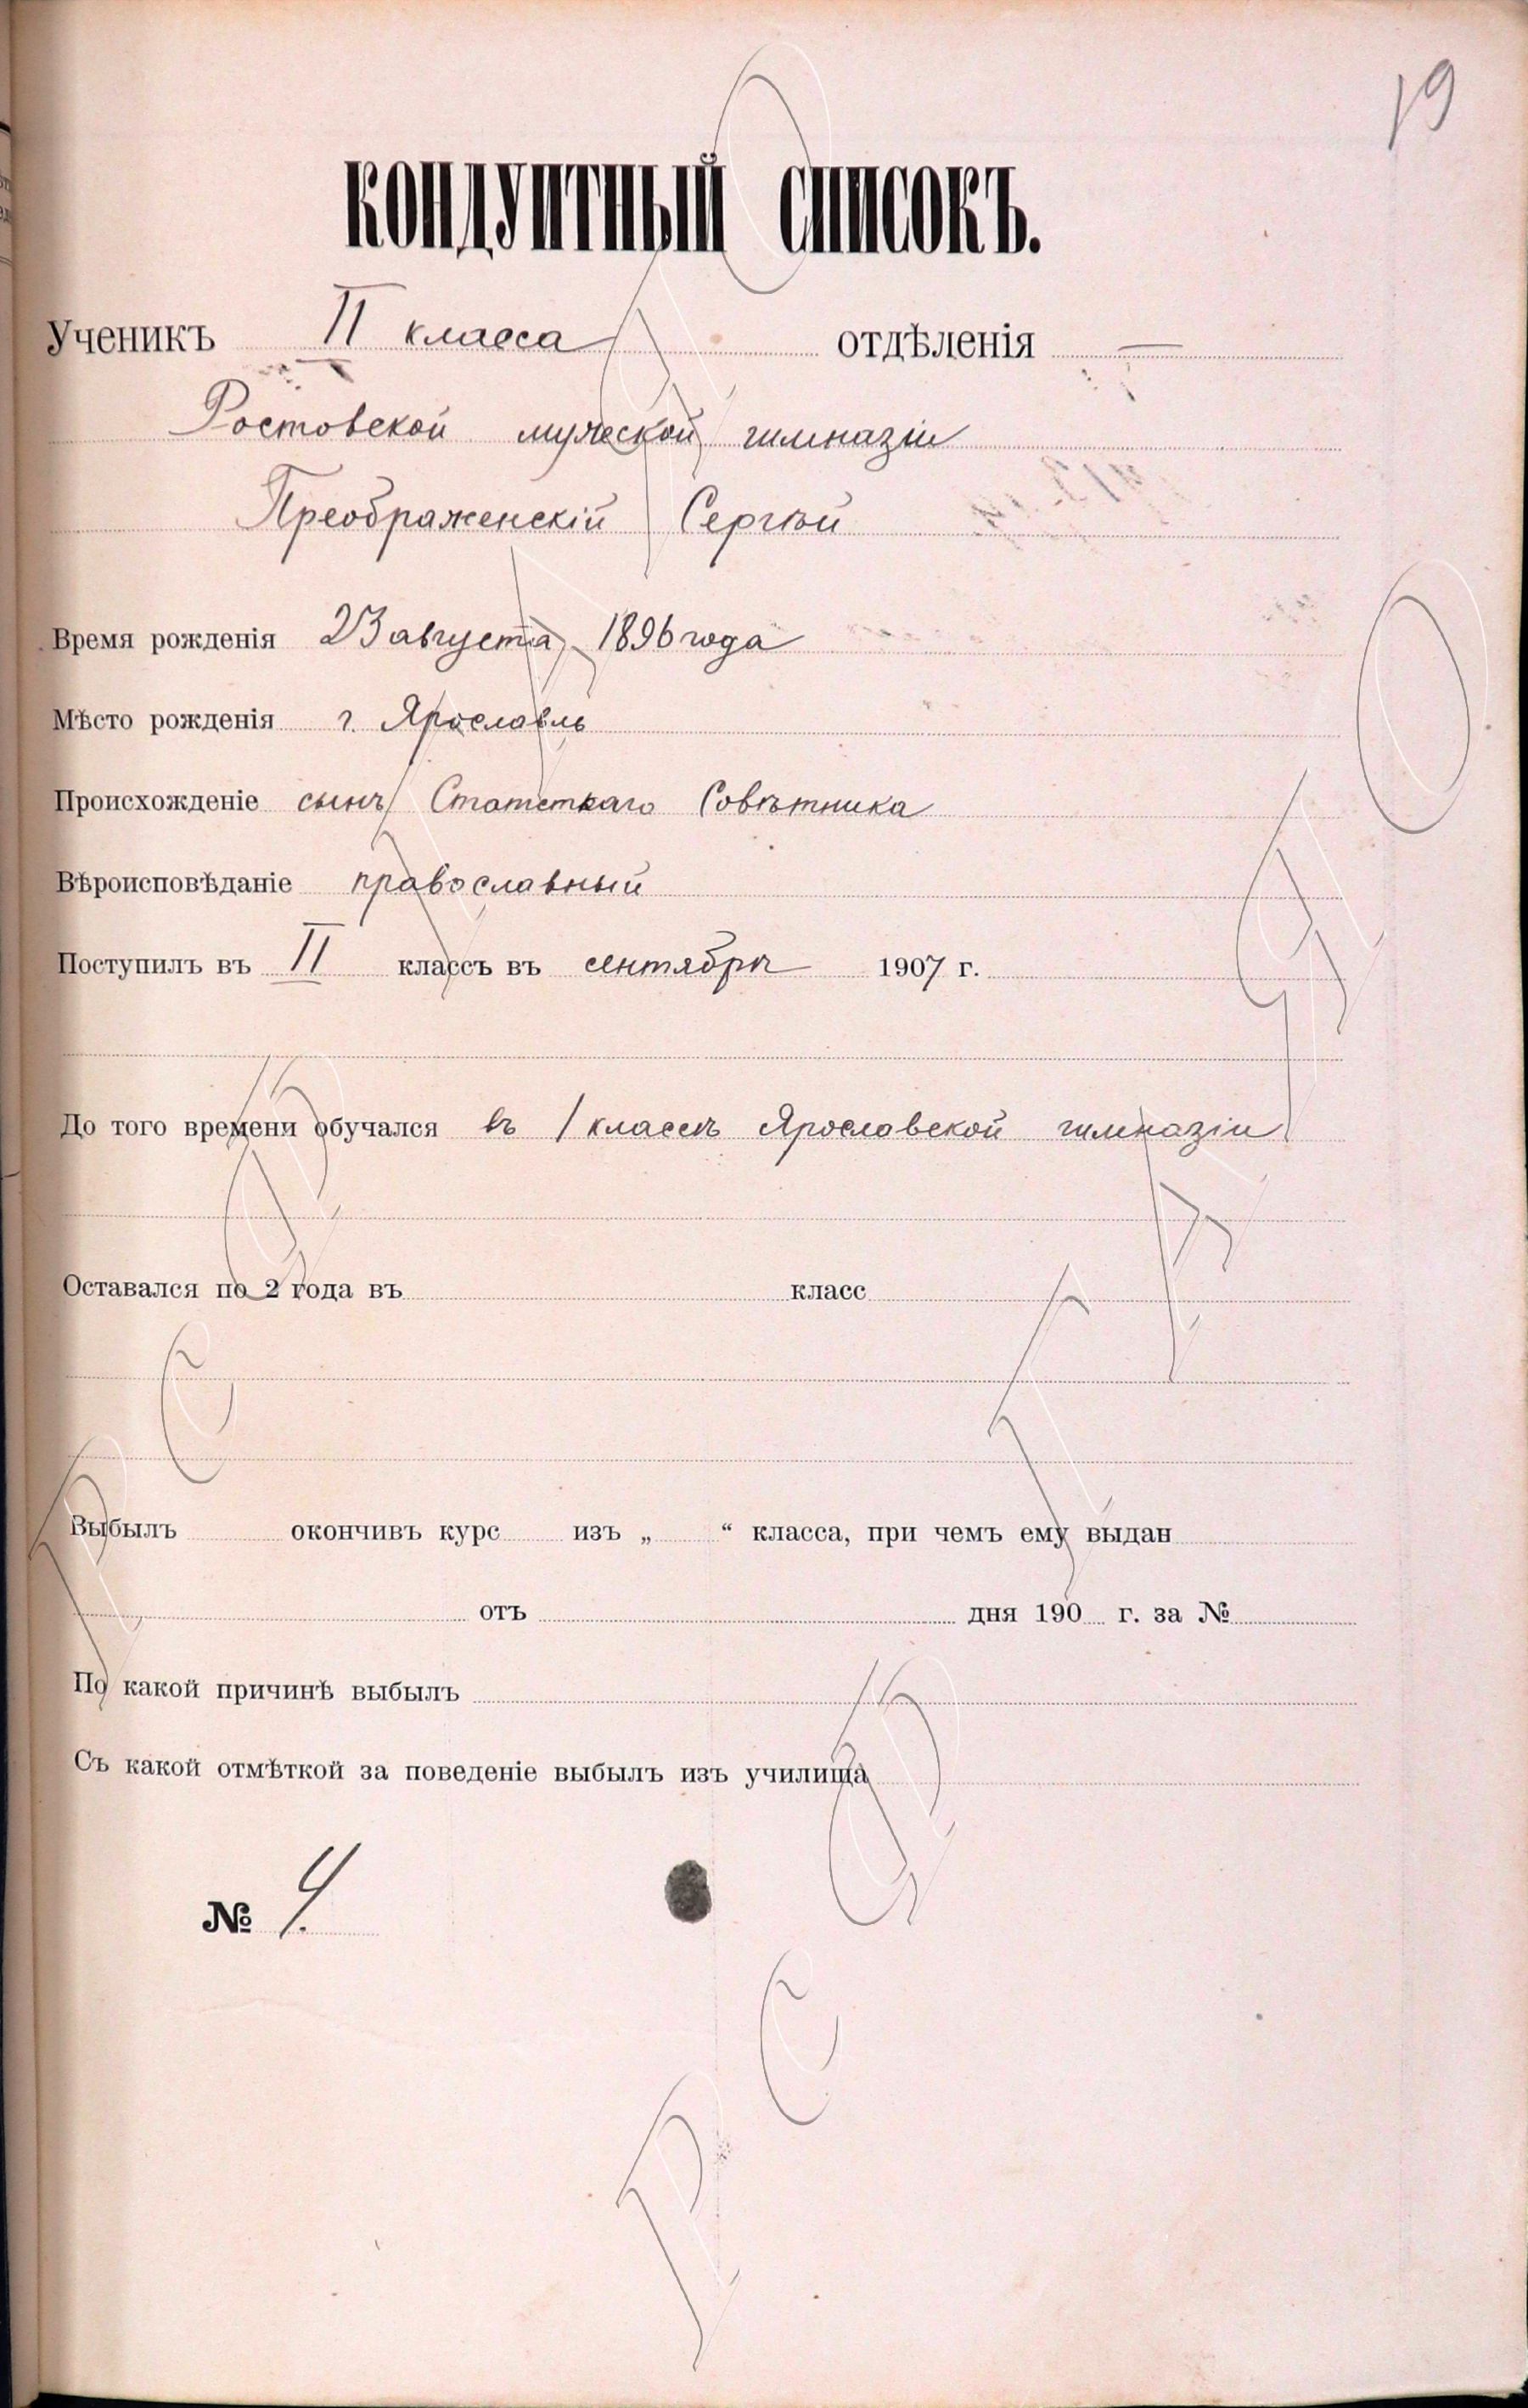 19
КОНДУИТНЫЙ СПИСОКЪ.
Ученикъ II класса отдѣленія —
Ростовской мужеской гимназіи
Преображенскій Сергѣй
Время рожденія 23 августа 1896 года
Мѣсто рожденія г. Ярославль
Происхожденіе сынъ Статсткаго Совѣтника
Вѣроисповѣданіе православный
Поступилъ въ II классъ въ сентябрѣ 1907 г.
До того времени обучался въ I классѣ Ярославской гимназіи
Оставался по 2 года въ класс
Выбылъ окончивъ курс изъ „ “ класса, при чемъ ему выдан
отъ дня 190 г. за №
По какой причинѣ выбылъ
Съ какой отмѣткой за поведеніе выбылъ изъ училища
№ 4.